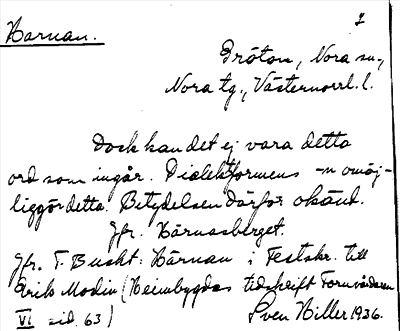 Härnan.
2
Grötom, Nora sn,
Nora tg., Västernorrl. l.
Dock kan det ej vara detta
ord som ingår. Dialektformens -n omöj-
liggör detta. Betydelsen därför okänd.
Jfr. Härnasberget.
Jfr. T. Bucht: Härnan i Festskr. till
Erik Modin (Heimbygdas tidskrift Fornvårdaren
VI sid. 63) Sven Hiller 1936.